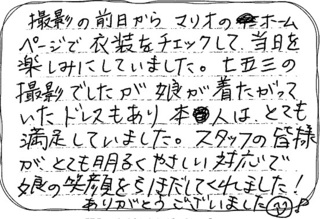 撮影の前日から マリオのホーム
ページで 衣装をチェックして、当日を
楽しみにしていました。七五三の
撮影でしたが 娘が着たがって
いた ドレスもあり 本人は、とても
満足していました。スタッフの皆様
が とても明るく やさしい 対応で
娘の笑顔を引きだしてくれました!
ありがとうございました